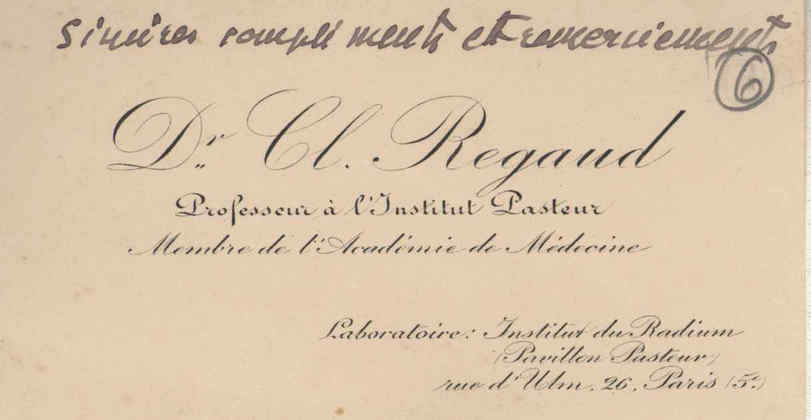 Sincères compliments et remerciements
6
Dr. Cl. Regaud
Professeur à l'Institut Pasteur
Membre de l'Académie de Médecine
Laboratoire: Institut du Radium
(Pavillon Pasteur)
rue d'Ulm, 26, Paris (5e)